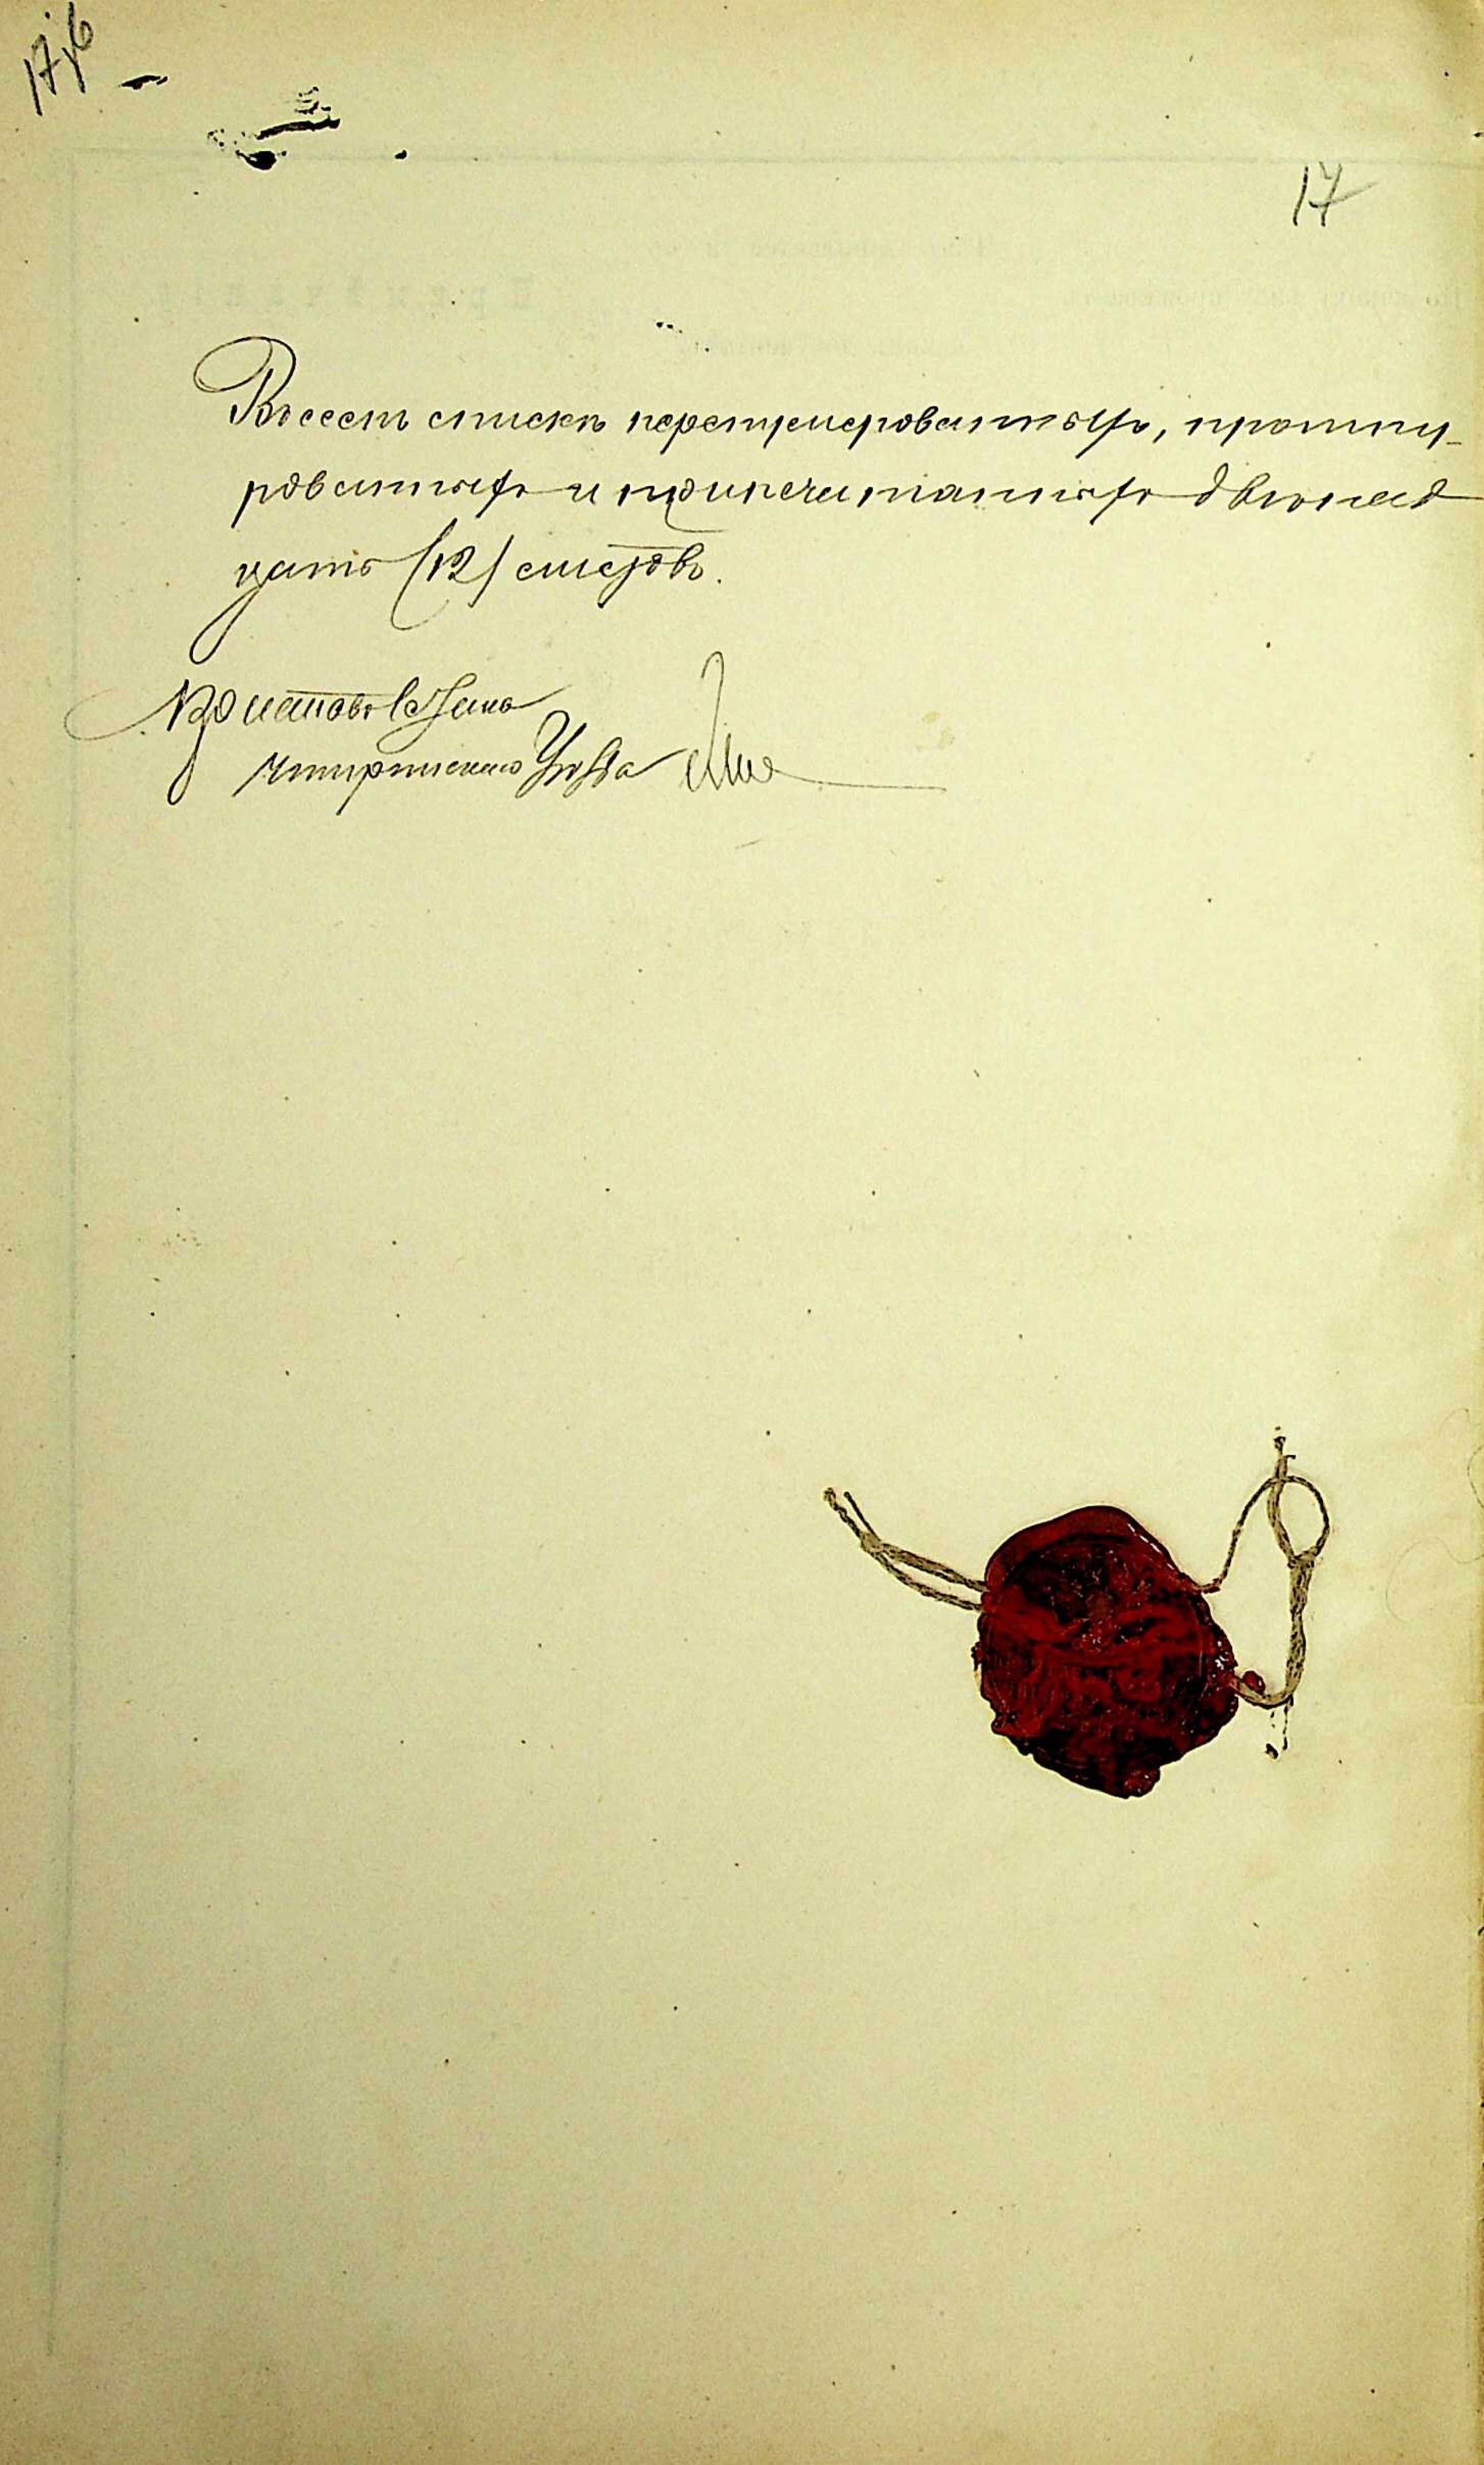 17/6
17
Въ сесмъ спискѣ перенумерованныхъ, прошну-
рованныхъ и припечатанныхъ двѣнад
цать (12) листовъ.
Чигиринскаго Уѣзда